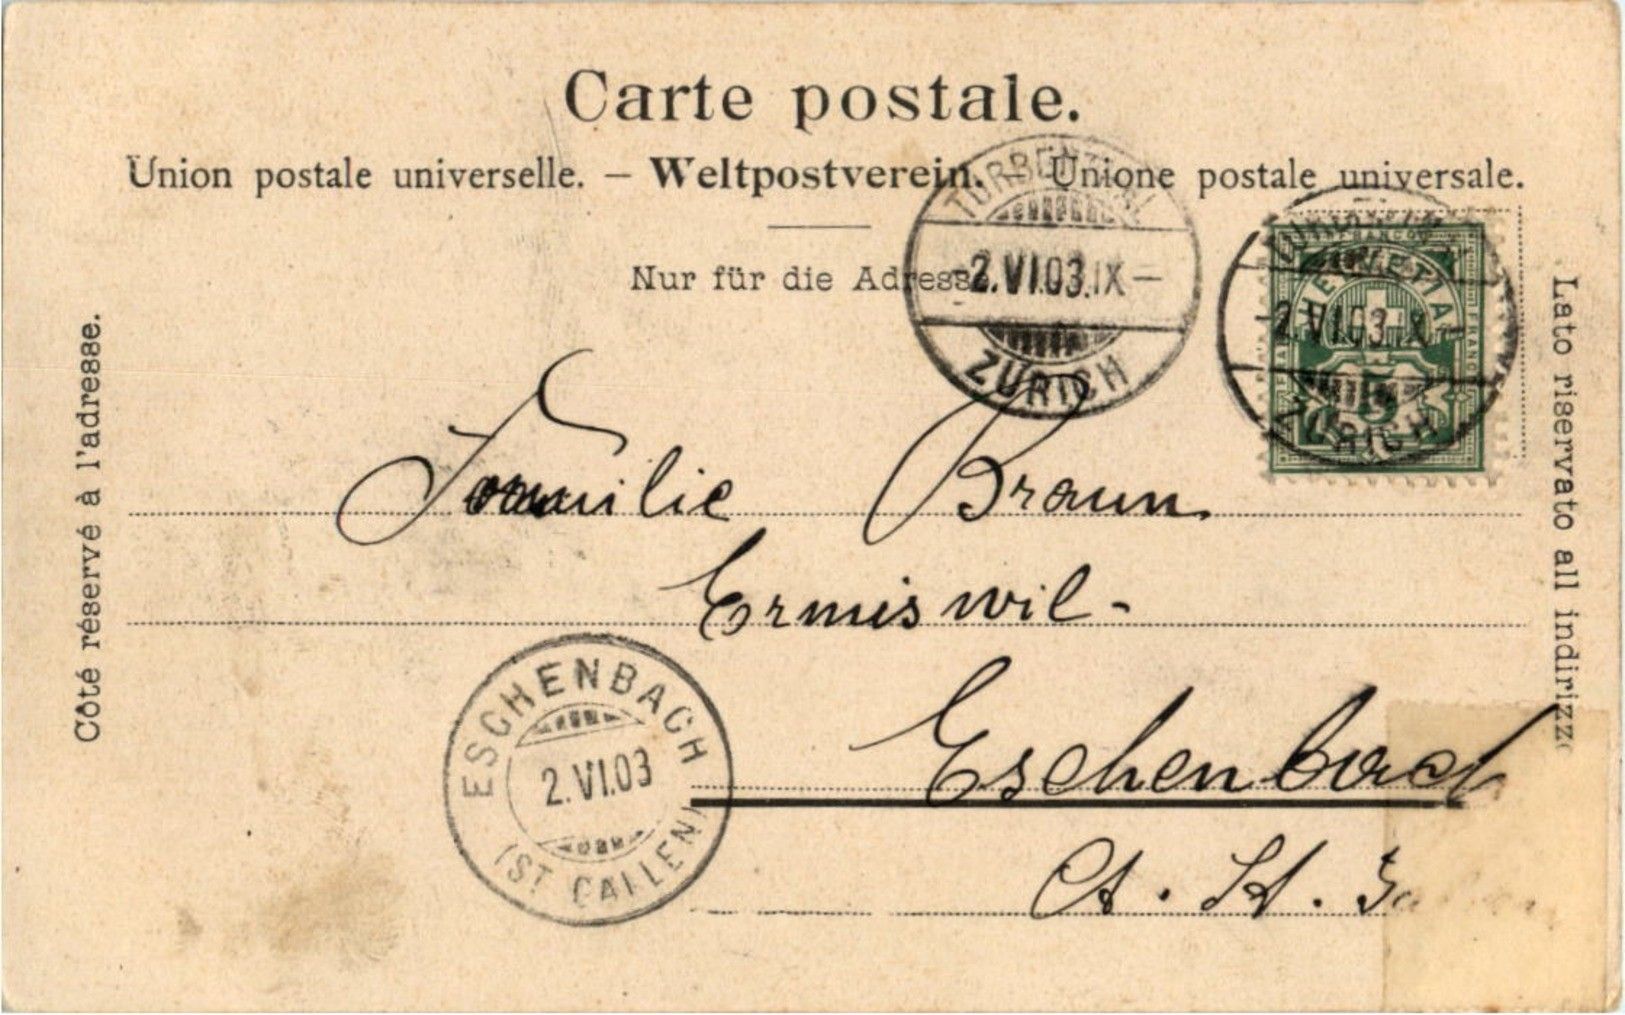 Carte postale.
Union postale universelle. – Weltpostverein. – Unione postale universale.
Nur für die Adresse
Côté réservé à l'adresse.
Lato riservato all indirizzo
TURBENTHAL
2.VI.03.IX–
ZÜRICH
HELVETIA
FRANCO
5
-2.VI.03.IX-
ZÜRICH
Familie Braun
Ermiswil-
Eschenbach
Ct. St.
ESCHENBACH
2.VI.03
(ST GALLEN)